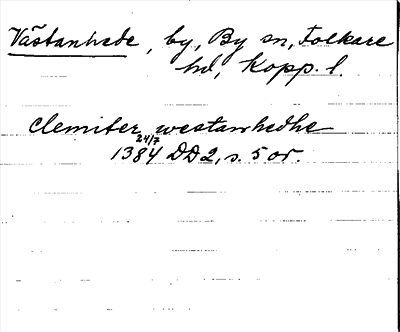 Västanhede, by, By sn, Folkare
hd, Kopp. l.
Clemiter westanhedhe
24/7
1384 DD2, s. 5 or.